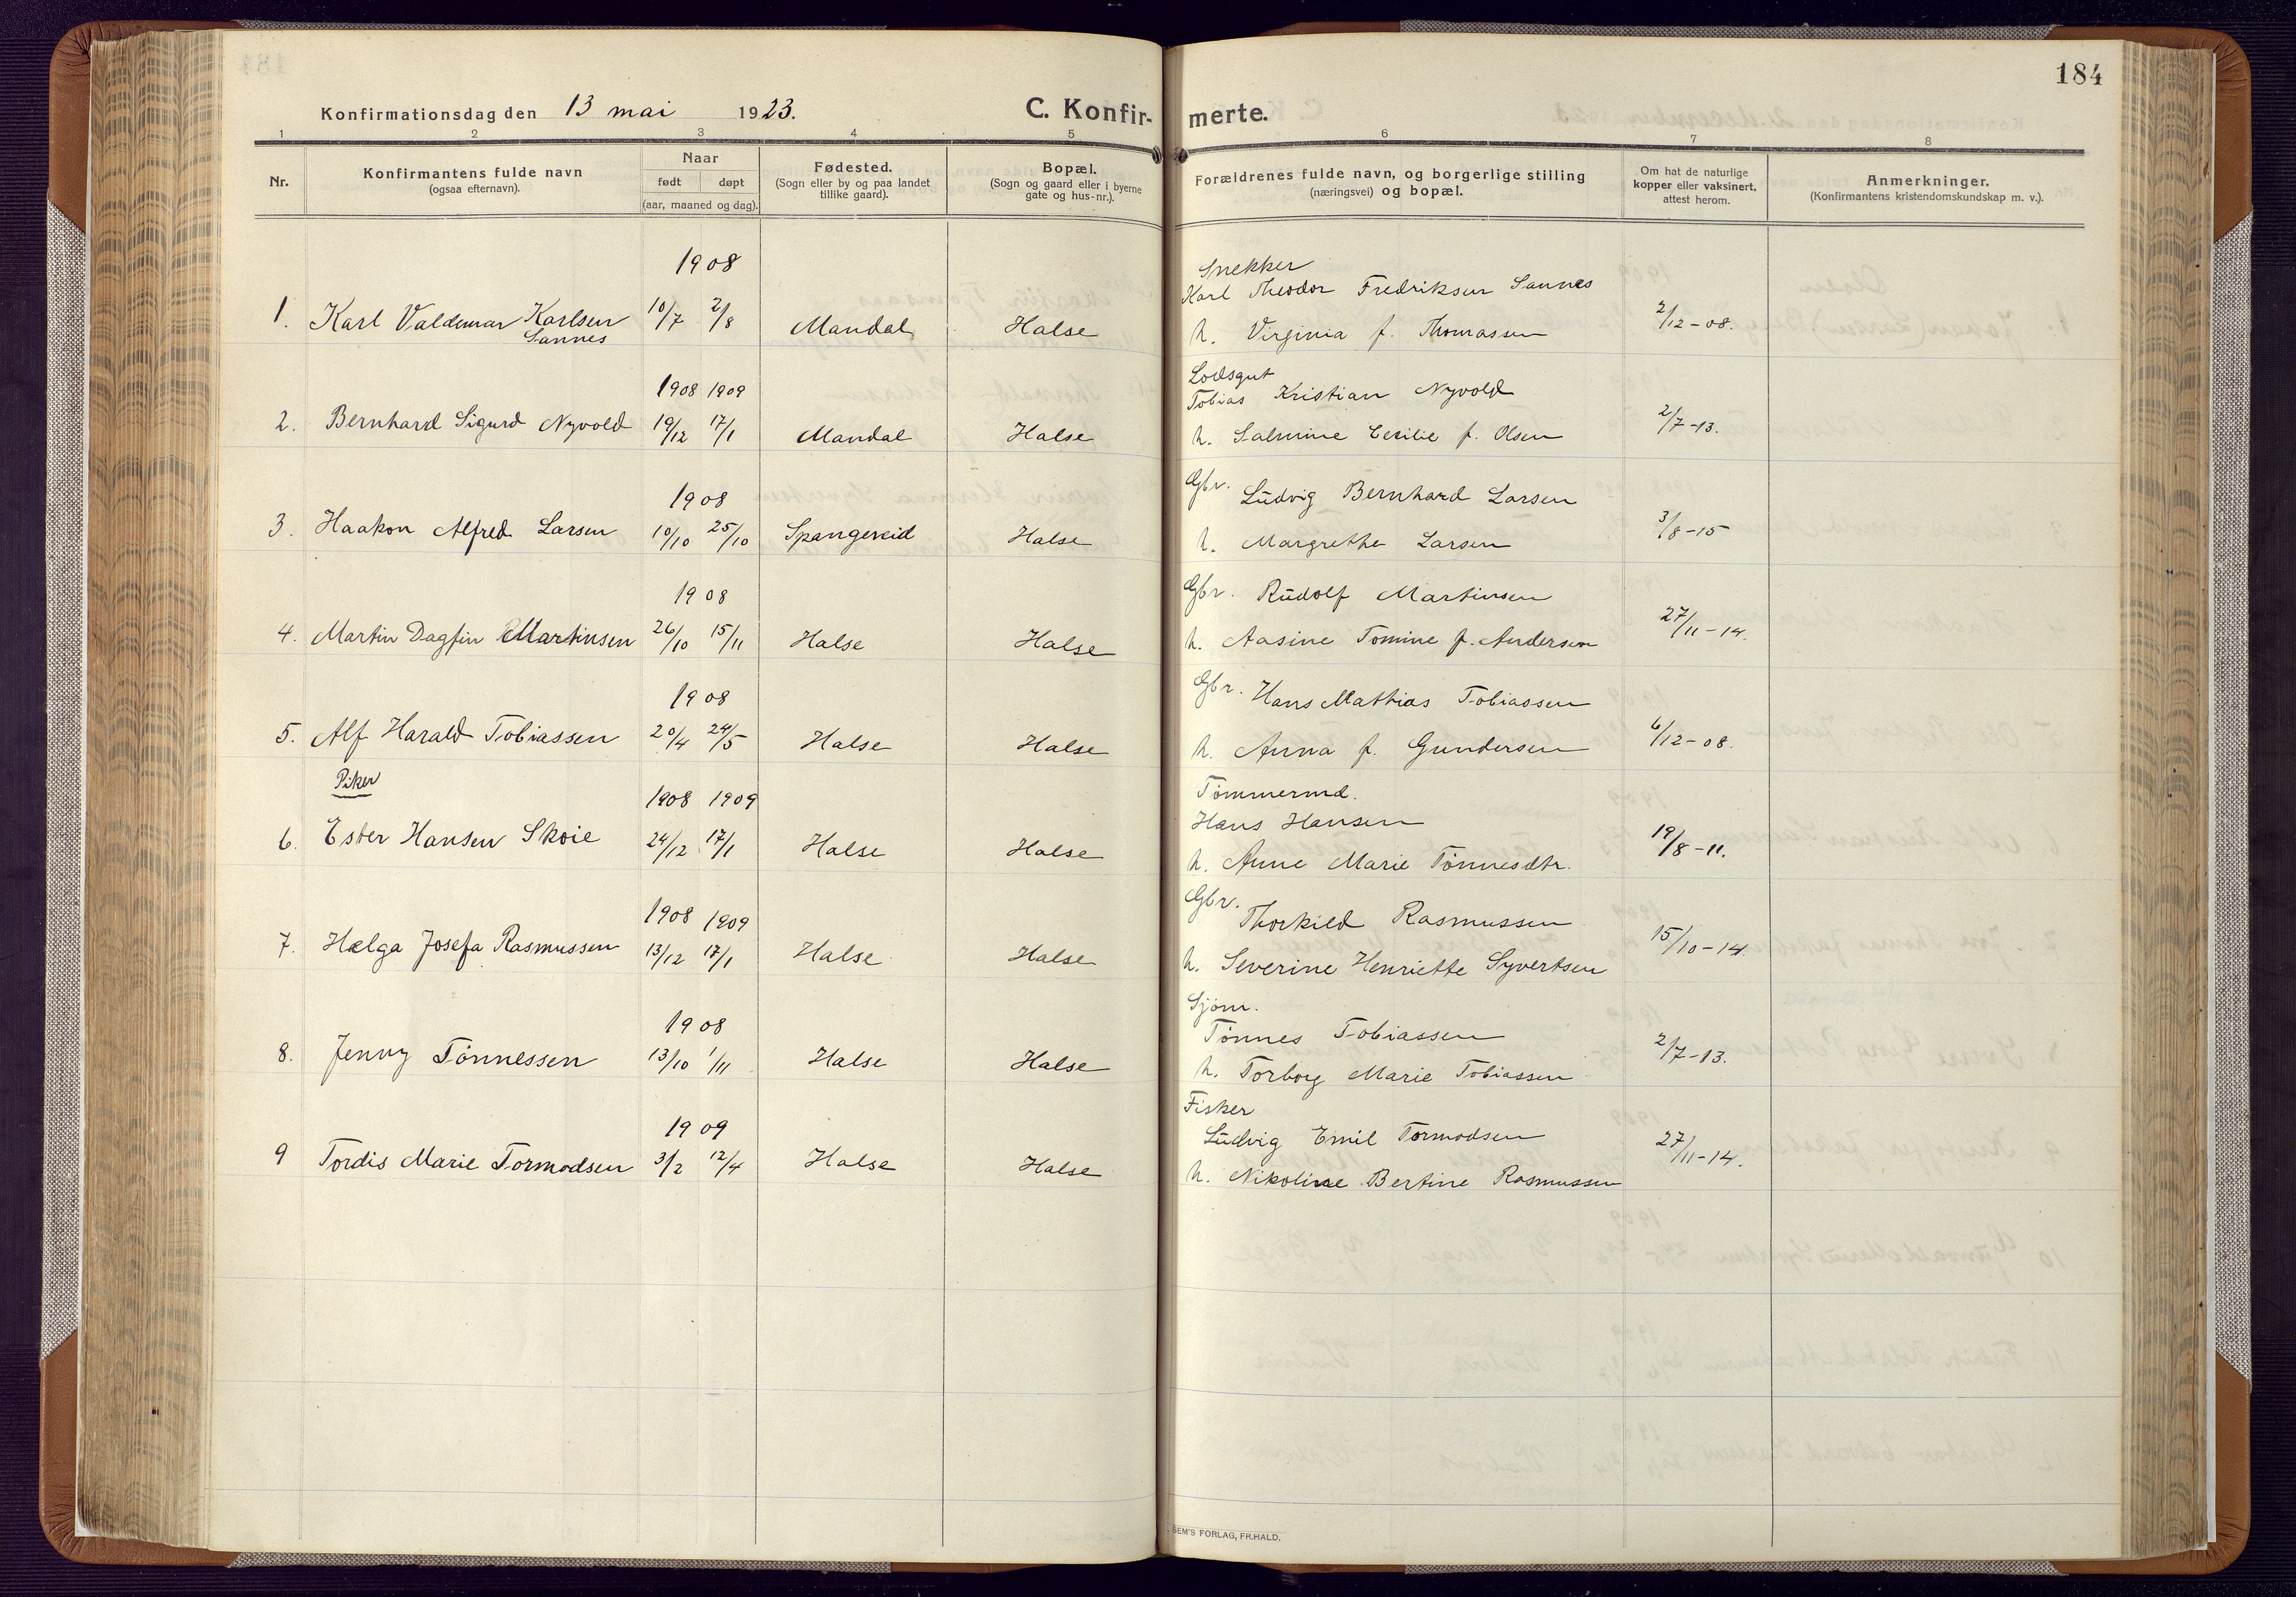 184
Konfirmationsdag den 13 mai 1923.
C. Konfir- merte.
1 2 3 4 5 6 7 8
Nr.
Konfirmantens fulde navn
(ogsaa efternavn).
Naar
født døpt
(aar, maaned og dag).
Fødested.
(Sogn eller by og paa landet
tillike gaard).
Bopæl.
(Sogn og gaard eller i byerne
gate og hus-nr.).
Forældrenes fulde navn, og borgerlige stilling
(næringsvei) og bopæl.
Om hat de naturlige
kopper eller vaksinert,
attest herom.
Anmerkninger.
(Konfirmantens kristendomskundskap m. v.).
1908
Snekker
Karl Theodor Fredriksen Sannes
1. Karl Valdemar Karlsen 10/7 2/8 Mandal Halse h. Virginia f. Thomassen 2/12-08.
Sannes
1908 1909
Lodsgut
Tobias Kristian Nyvold
2. Bernhard Sigurd Nyvold 19/12 17/1 Mandal Halse h. Salmine Cecilie f. Olsen 2/7-13.
1908
Gbr. Ludvig Bernhard Larsen
3. Haakon Alfred Larsen 10/10 25/10 Spangereid Halse h. Margrethe Larsen 3/8-15
1908
Gbr. Rudolf Martinsen
4. Martin Dagfin Martinsen 26/10 15/11 Halse Halse h. Aasine Tomine f. Andersen 27/11-14.
1908
Gbr. Hans Mathias Tobiassen
5. Alf Harald Tobiassen 20/4 24/5 Halse Halse h. Anna f. Gundersen 6/12-08.
Piker
1908 1909
Tømmermd.
Hans Hansen
6. Ester Hansen Skoie 24/12 17/1 Halse Halse h. Anne Marie Tønnesdtr. 19/8-11.
1908 1909
Gbr. Thorkild Rasmussen
7. Helga Josefa Rasmussen 13/12 17/1 Halse Halse h. Severine Henriette Syvertsen 15/10-14.
1908
Sjøm.
Tønnes Tobiassen
8. Jenny Tønnessen 13/10 1/11 Halse Halse h. Torborg Marie Tobiassen 2/7-13.
1909
Fisker
Ludvig Emil Tormodsen
9 Tordis Marie Tormodsen 3/2 12/4 Halse Halse h. Nikoline Bertine Rasmussen 27/11-14.
SEM'S FORLAG, FR.HALD.